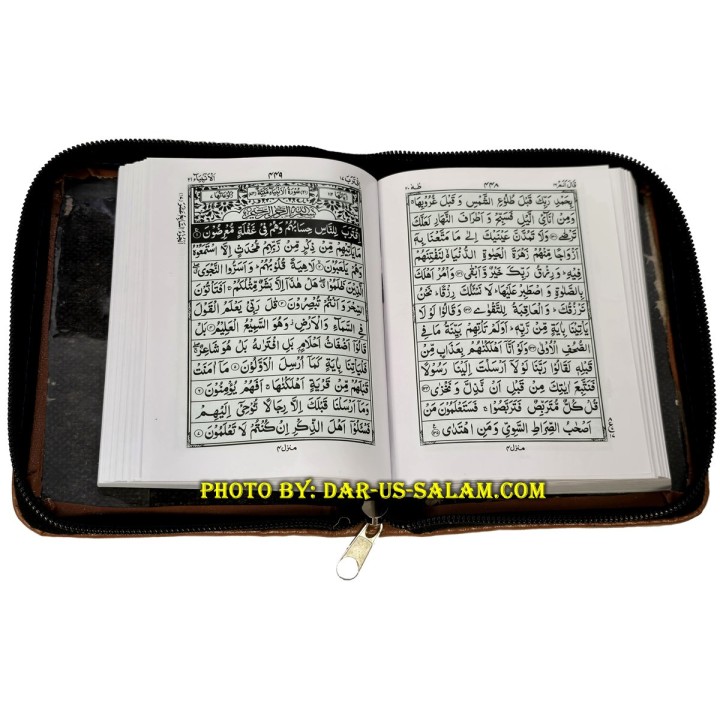 قَالَ اَلَمْ ١٦ ۴۴۸ طٰهٰ ٢٠
بِحَمْدِ رَبِّكَ قَبْلَ طُلُوْعِ الشَّمْسِ وَ قَبْلَ غُرُوْبِهَا ۚ
وَمِنْ اٰنَآئِ الَّيْلِ فَسَبِّحْ وَ اَطْرَافَ النَّهَارِ لَعَلَّكَ
تَرْضٰى وَلَا تَمُدَّنَّ عَيْنَيْكَ اِلٰى مَا مَتَّعْنَا بِهٖٓ
اَزْوَاجًا مِّنْهُمْ زَهْرَةَ الْحَيٰوةِ الدُّنْيَا لِنَفْتِنَهُمْ
فِيْهِ ؕ وَرِزْقُ رَبِّكَ خَيْرٌ وَّاَبْقٰى وَاْمُرْ اَهْلَكَ
بِالصَّلٰوةِ وَ اصْطَبِرْ عَلَيْهَا ؕ لَا نَسْئَلُكَ رِزْقًا ؕ نَحْنُ
نَرْزُقُكَ ؕ وَ الْعَاقِبَةُ لِلتَّقْوٰى وَقَالُوْا لَوْ لَا
يَاْتِيْنَا بِاٰيَةٍ مِّنْ رَّبِّهٖ ؕ اَوَلَمْ تَاْتِهِمْ بَيِّنَةُ مَا فِى
الصُّحُفِ الْاُوْلٰى وَلَوْ اَنَّآ اَهْلَكْنٰهُمْ بِعَذَابٍ مِّنْ
قَبْلِهٖ لَقَالُوْا رَبَّنَا لَوْ لَآ اَرْسَلْتَ اِلَيْنَا رَسُوْلًا
فَنَتَّبِعَ اٰيٰتِكَ مِنْ قَبْلِ اَنْ نَّذِلَّ وَ نَخْزٰى
قُلْ كُلٌّ مُّتَرَبِّصٌ فَتَرَبَّصُوْا ۚ فَسَتَعْلَمُوْنَ مَنْ
اَصْحٰبُ الصِّرَاطِ السَّوِيِّ وَ مَنِ اهْتَدٰى
منزل ۴
اقترب ١٧ ۴۴۹ الانبياء ٢١
سُوْرَةُ الْاَنْبِيَآءِ مَكِّيَّةٌ
بِسْمِ اللّٰهِ الرَّحْمٰنِ الرَّحِيْمِ
اِقْتَرَبَ لِلنَّاسِ حِسَابُهُمْ وَهُمْ فِيْ غَفْلَةٍ مُّعْرِضُوْنَ
مَا يَاْتِيْهِمْ مِّنْ ذِكْرٍ مِّنْ رَّبِّهِمْ مُّحْدَثٍ اِلَّا اسْتَمَعُوْهُ
وَهُمْ يَلْعَبُوْنَ لَاهِيَةً قُلُوْبُهُمْ ؕ وَ اَسَرُّوا النَّجْوَى
الَّذِيْنَ ظَلَمُوْا هَلْ هٰذَآ اِلَّا بَشَرٌ مِّثْلُكُمْ ۚ اَفَتَاْتُوْنَ
السِّحْرَ وَ اَنْتُمْ تُبْصِرُوْنَ قٰلَ رَبِّيْ يَعْلَمُ الْقَوْلَ
فِي السَّمَآءِ وَ الْاَرْضِ وَهُوَ السَّمِيْعُ الْعَلِيْمُ بَلْ
قَالُوْٓا اَضْغَاثُ اَحْلَامٍۢ بَلِ افْتَرٰىهُ بَلْ هُوَ شَاعِرٌ
فَلْيَاْتِنَا بِاٰيَةٍ كَمَآ اُرْسِلَ الْاَوَّلُوْنَ مَآ اٰمَنَتْ
قَبْلَهُمْ مِّنْ قَرْيَةٍ اَهْلَكْنٰهَا ۚ اَفَهُمْ يُؤْمِنُوْنَ
وَمَآ اَرْسَلْنَا قَبْلَكَ اِلَّا رِجَالًا نُّوْحِيْٓ اِلَيْهِمْ
فَسْئَلُوْٓا اَهْلَ الذِّكْرِ اِنْ كُنْتُمْ لَا تَعْلَمُوْنَ
منزل ۴
PHOTO BY: DAR-US-SALAM.COM